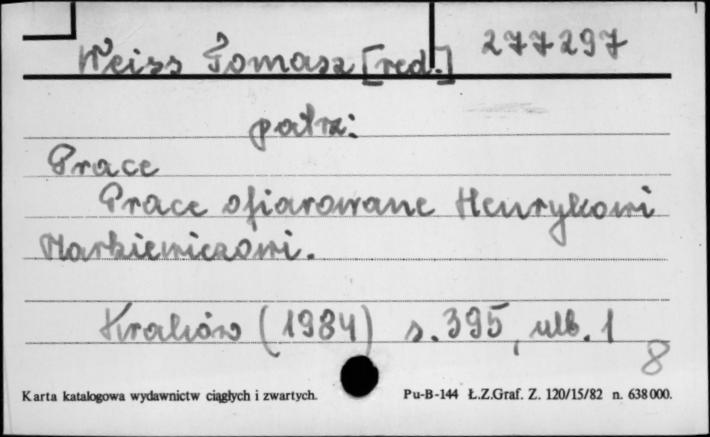 Weiss Tomasz [red.] 277297
patrz:
Prace
Prace ofiarowane Henrykowi
Markiewiczowi.
Kraków (1984) s. 395, ulb. 1
8
Karta katalogowa wydawnictw ciągłych i zwartych. Pu-B-144 Ł.Z.Graf. Z. 120/15/82 n. 638000.